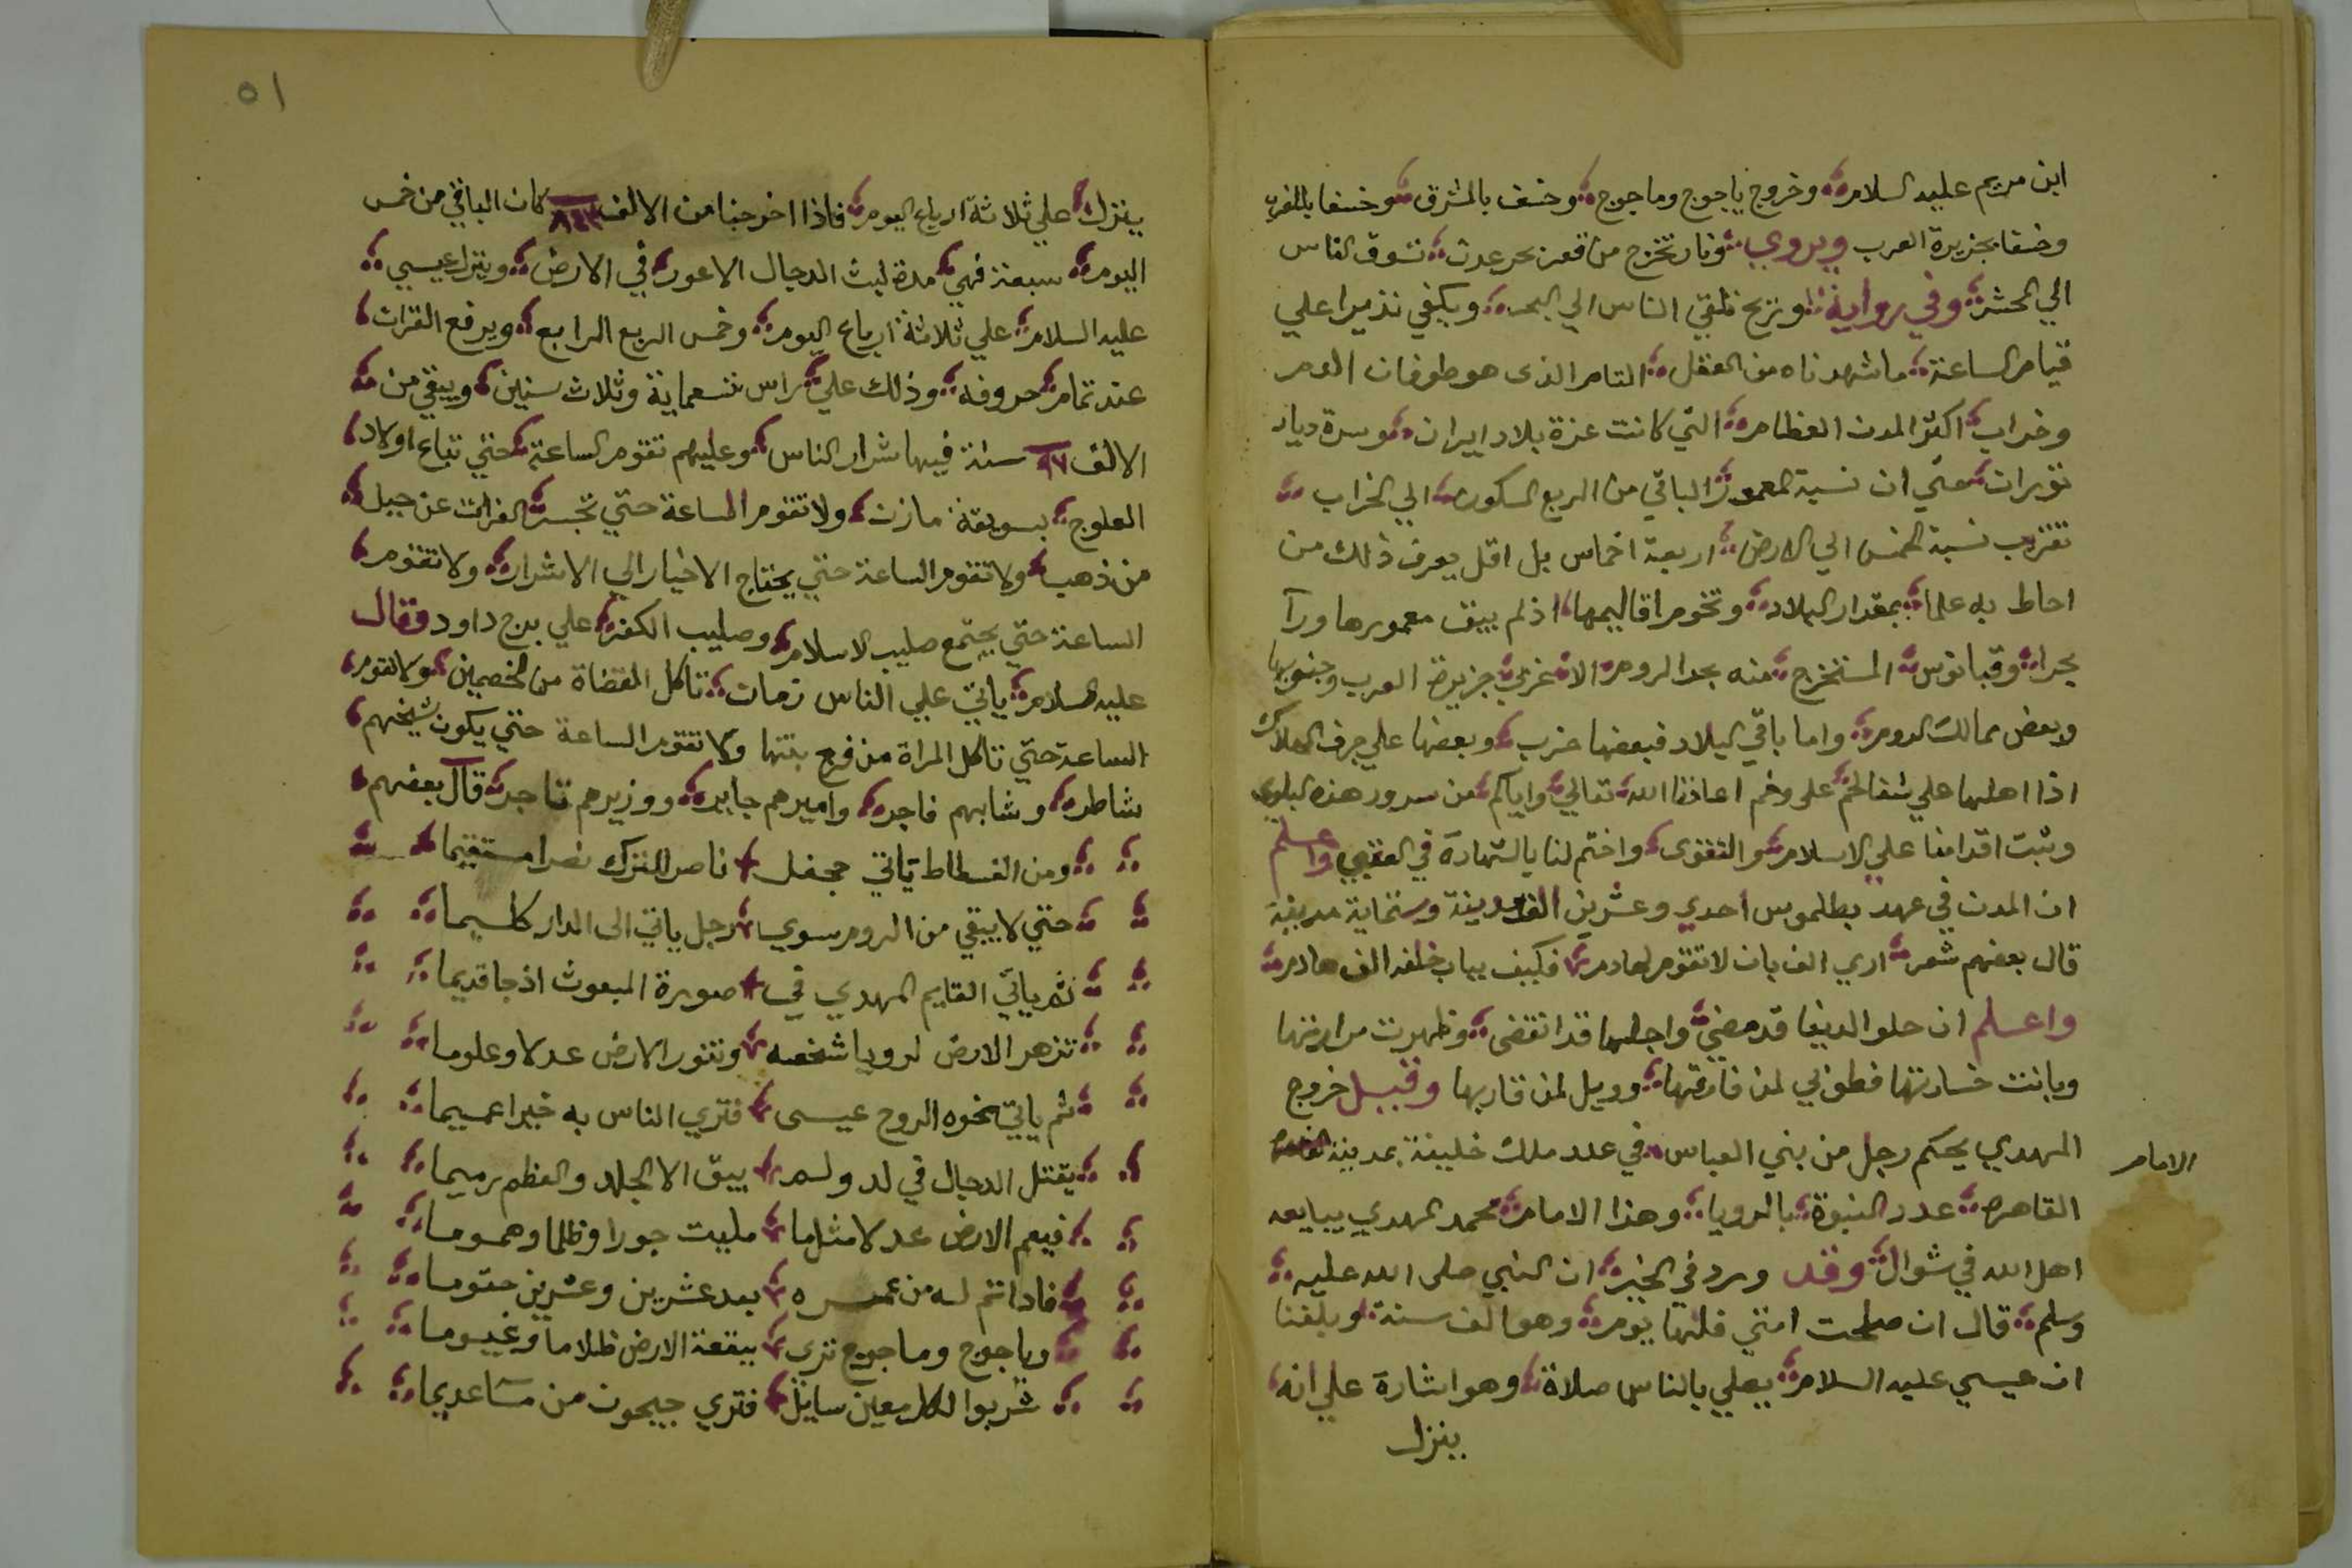 ابن مريم عليه السلام وخروج ياجوج وماجوج وخسف بالمشرق وخسفا بالمغرب
وخسفا بجزيرة العرب ويروي ونار تخرج من قعر بحر عدن تسوق الناس
الي المحشر وفي رواية وريح تلقي الناس الي البحر ويكفي نذيرا علي
قيام الساعة ما شهدناه من القتل التام الذى هو طوفان الدم
وخراب اكثر المدن العظام التي كانت غزة بلاد ايران وسرة ديار
توران حتي ان نسبة المعمور الباقي من الربع المسكون الي الخراب
تقرب نسبة الخمس الي الارض اربعة اخماس بل اقل يعرف ذلك من
احاط به علما بمقدار البلاد وتخوم اقاليمها اذ لم يبق معمورها ورآ
بحر اوقيانوس المستخرج منه بحد الروم الا غربي جزيرة العرب وجنوبها
وبعض ممالك الروم واما باقي البلاد فبعضها خرب وبعضها علي جرف الهلاك
اذا اهلها علي شفا لحم على وخم اعاذنا الله تعالي واياكم من سرور هذه البلوي
وثبت اقدامنا علي الاسلام والتقوى واختم لنا بالشهادة في العقبي واعلم
ان المدن في عهد بطلموس احدي وعشرين الف مدينة وستماية مدينة
قال بعضهم شعر اري الف بان لا تقوم لهادم فكيف ببان خلفه الف هادم
واعلم ان حلو الدنيا قد مضي واجلها قد انقضى وظهرت مرارتها
وبانت خسارتها فطوبي لمن فارقها وويل لمن قاربها وقبيل خروج
المهدي يحكم رجل من بني العباس في عدد ملك خليفة بمدينة
الامام
القاهره عدد النبوة بالرويا وهذا الامام محمد المهدي يبايعه
اهل الله في شوال وقد ورد في الخبر ان النبي صلى الله عليه
وسلم قال ان صلحت امتي فلها يوم وهو الف سنة وبلغنا
ان عيسي عليه السلام يصلي بالناس صلاة وهو اشارة علي انه
ينزل
٥١
ينزل علي ثلاثة ارباع اليوم فاذا اخرجنا من الالف ٨٤٣ كان الباقي من خمس
اليوم سبعة فهي مدة لبث الدجال الاعور في الارض وينزل عيسي
عليه السلام علي ثلاثة ارباع اليوم وخمس الربع الرابع ويرفع القران
عند تمام حروفه وذلك علي راس تسعماية وثلاث سنين ويبقي من
الالف ٩٧ سنة فيها شرار الناس وعليهم تقوم الساعة حتي تباع اولاد
العلوج بسويقة مازن ولا تقوم الساعة حتي تحسر الفرات عن جبل
من ذهب ولا تقوم الساعة حتي يحتاج الاخيار الي الاشرار ولا تقوم
الساعة حتي يجتمع صليب الاسلام وصليب الكفر علي برج داود فقال
عليه السلام ياتي علي الناس زمان تاكل القضاة من الخصمين ولا تقوم
الساعة حتي تاكل المراة من فرج بنتها ولا تقوم الساعة حتي يكون شيخهم
شاطره وشابهم فاجره واميرهم جايره ووزيرهم تاجره قال بعضهم
ومن الفسطاط ياتي جحفل ناصر للترك نصرا مستقيما
حتي لا يبقي من الروم سوي رجل ياتي الى الدار كليما
ثم ياتي القايم المهدي في صورة المبعوث اذ جا قديما
تزهر الارض لرويا شخصه وتنور الارض عدلا وعلوما
ثم ياتي نحوه الروح عيسى فتري الناس به خيرا عميما
يقتل الدجال في لد ولم يبق الا الجلد والعظم رميما
فيعم الارض عدلا مثلما مليت جورا وظلما وهموما
فاذا تم له من عمره بعد عشرين وعشرين حتوما
وياجوج وماجوج ترى ببقعة الارض ظلاما وغيوما
شربوا لكل معين سايل فتري جيحون من مسا عديما